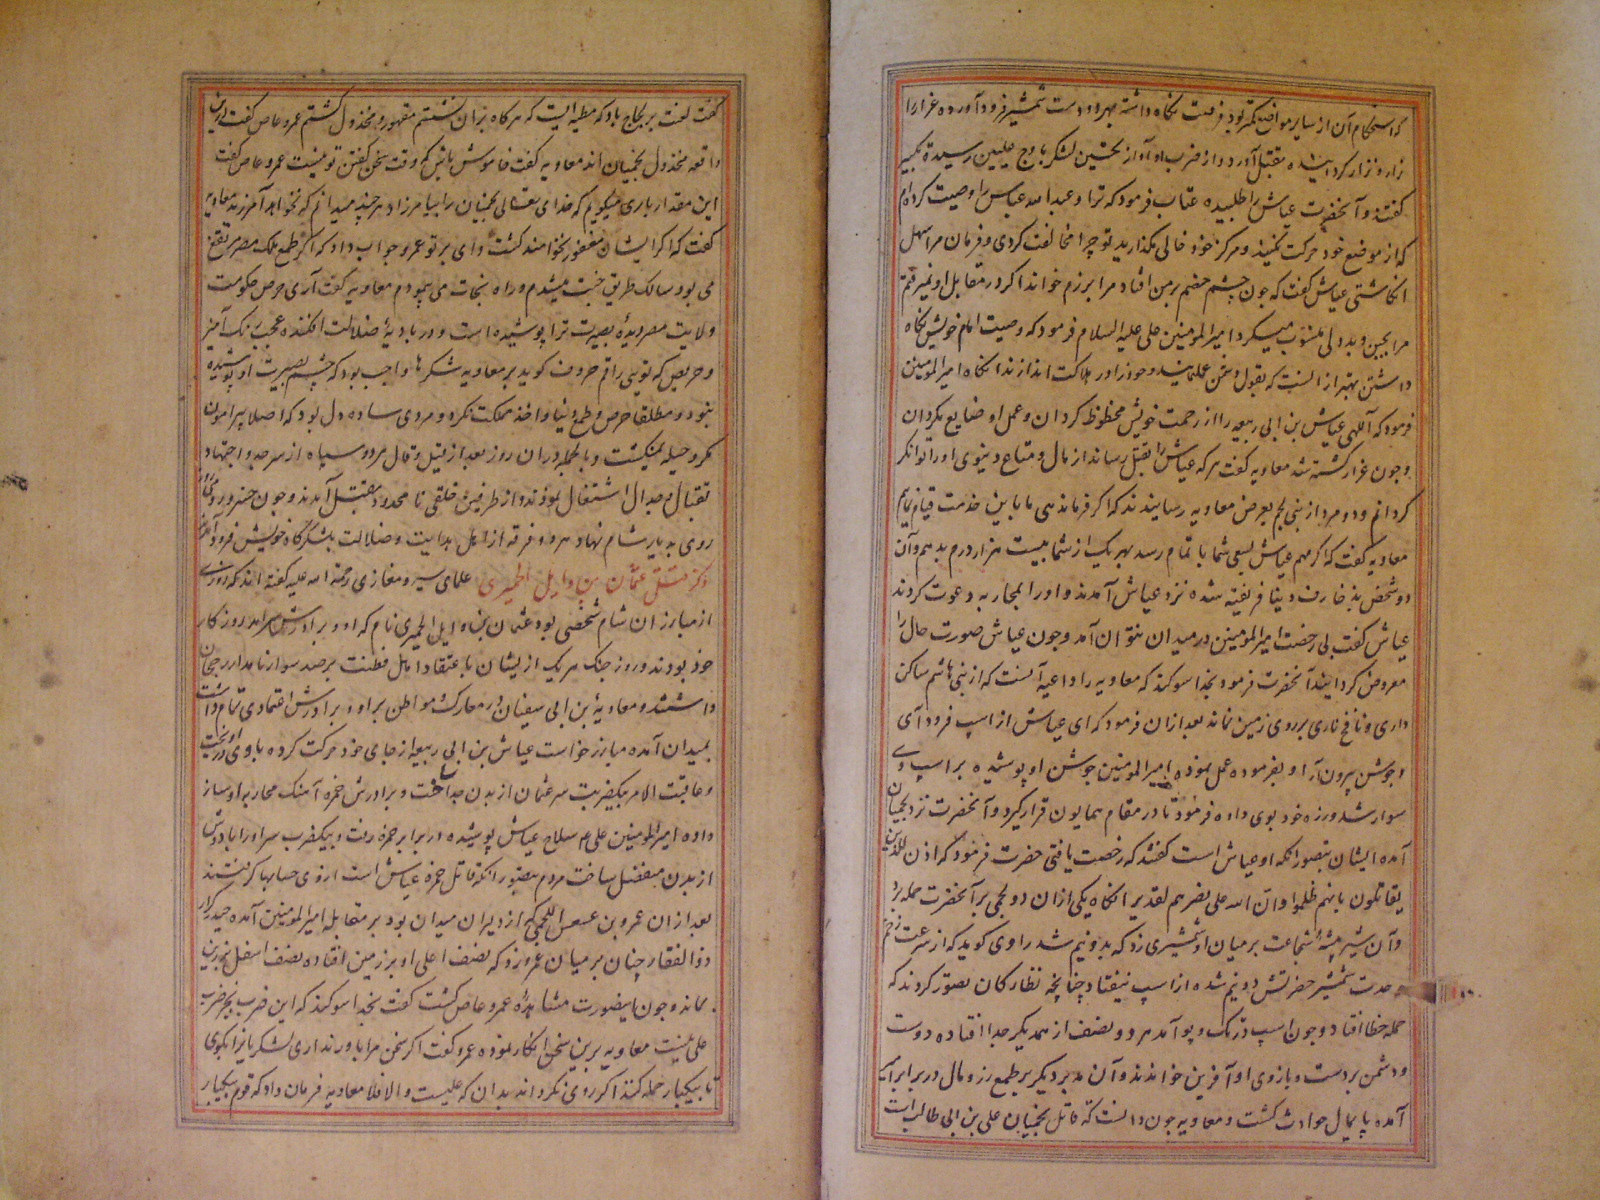 که استحکام آن از سایر مواضع کمتر بود فرصت نگاه داشته بهر دو دست شمشیر فرود آورده غرار را
زار و نزار گردانیده بقتل آورد و از ضرب او آواز تحسین لشکر باوج علیین رسیده تکبیر
گفتند و آنحضرت عیاش را طلبیده عتاب فرمود که ترا و عبد الله عباس را وصیت کرده‌ام
که از موضع خود حرکت نکنید و مرکز خود خالی مگذارید تو چرا مخالفت کردی و فرمان مرا سهل
انگاشتی عیاش گفت که چون چشم خصم بر من افتاد مرا برزم خواند اگر در مقابل او نمیرفتم
مرا بجبن و بددلی منسوب میکرد امیر المومنین علی علیه السلام فرمود که وصیت امام خویش نگاه
داشتن بهتر از آنست که بقول دشمن عمل نمایند و خود را در هلاکت اندازند آنگاه امیر المومنین
فرمود که آللهی عیاش بن ابی ربیعه را از رحمت خویش محظوظ گردان و عمل او ضایع مگردان
و چون غرار کشته شد معاویه گفت هر که عیاش را بقتل رساند از مال و متاع دنیوی او را توانگر
گردانم و دو مرد از بنی لخم بعرض معاویه رسانیدند که اگر فرمان دهی ما باین خدمت قیام نمایم
معاویه گفت که اگر مهم عیاش بسعی شما با تمام رسد بهر یک از شما بیست هزار درم بدهم و آن
دو شخص بزخارف دنیا فریفته شده نزد عیاش آمدند و او را بمحاربه دعوت کردند
عیاش گفت بی رخصت امیر المومنین در میدان نتوان آمد و چون عیاش صورت حال را
معروض گردانید آنحضرت فرمود بخدا سوگند که معاویه را داعیه آنست که از بنی هاشم ساکن
داری و نافخ ناری بر روی زمین نماند بعد ازان فرمود که ای عیاش از اسپ فرود آی
و جوشن بیرون آر او بفرموده عمل نموده امیر المومنین جوشن او پوشیده بر اسپ وی
سوار شد و زره خود بوی داده فرمود تا در مقام همایون قرار گیرد و آنحضرت نزد لخمیان
آمده ایشان بتصور آنکه او عیاش است گفتند که رخصت یافتی حضرت فرمود که اذن للذین
یقاتلون بانهم ظلموا و ان الله علی نصرهم لقدیر آنگاه یکی ازان دو لخمی بر آنحضرت حمله برد
و آن شیر بیشه شجاعت بر میان او شمشیری زد که بدو نیم شد راوی گوید که از سرعت زخم
و حدت شمشیر حضرتش دو نیم شده از اسپ نیفتاد چنانچه نظارگان تصور کردند که
حمله خطا افتاد و چون اسپ در تک و پو آمد هر دو نصف از همدیگر جدا افتاده دوست
و دشمن بر دست و بازوی او آفرین خواندند و آن مدبر دیگر بر طمع زر و مال در برابر امیر
آمده پایمال حوادث گشت و معاویه چون دانست که قاتل لخمیان علی بن ابی طالب است
گفت لعنت بر لجاج باد که مطیه ایست که هرگاه بران نشستم مقهور و مخذول گشتم عمرو عاص گفت درین
واقعه مخذول لخمیان اند معاویه گفت خاموش باش که وقت سخن گفتن تو نیست عمرو عاص گفت
این مقدار باری میگویم که خدای تعالی لخمیان را بیامرزاد هر چند میدانم که نخواهد آمرزید معاویه
گفت که اگر ایشان مغفور نخواهند گشت وای بر تو عمرو جواب داد که اگر طمع ملک مصر در یقین
می بود سالک طریق خبث میشدم و راه نجات می پیمودم معاویه گفت آری حرص حکومت
ولایت مصر دیده بصیرت ترا پوشیده است و در بادیه ضلالت افکنده عجب رنگ آمیز
و حریص که تویی راقم حروف گوید بر معاویه شکرها واجب بود که چشم بصیرت او پوشیده
نبود و مطلقا حرص و طمع دنیا و اخذ مملکت نکرد و مردی ساده دل بود که اصلا پیرامون
مکر و حیله نمیگشت و بالجمله دران روز بعد از قیل و قال هر دو سپاه از سر جد و اجتهاد
بقتال و جدال اشتغال نمودند و از طرفین خلقی نا محدود بقتل آمدند و چون خسرو روز
روی بدیار شام نهاد هر دو فرقه از اهل هدایت و ضلالت بلشکرگاه خویش فرود آمدند
ذکر قتل عثمان بن وایل الحمیری علمای سیر و مغازی رحمة الله علیه گفته اند که روزی
از مبارزان شام شخصی بود عثمان بن وایل الحمیری نام که او و برادرش سرآمد روزگار
خود بودند و روز جنگ هر یک از ایشان با عتقاد اهل فطنت بر صد سوار نامدار رجحان
داشتند و معاویه بن ابی سفیان در معارک و مواطن بر او و برادرش اعتمادی تمام داشت
بمیدان آمده مبارز خواست عیاش بن ابی ربیعه از جای خود حرکت کرده با وی در گشت
و عاقبت الامر بیکضربت سر عثمان از بدن جدا ساخت و برادرش حمزه آهنگ محاربه او ساز
داده امیر المومنین علی ع سلاح عیاش پوشیده در برابر حمزه رفت و بیکضرب سر او را با دوش
از بدن منفصل ساخت مردم بتصور آنکه قاتل حمزه عیاش است ازوی حسابها گرفتند
بعد ازان عمرو بن اللخمی که از دلیران میدان بود بر مقابله امیر المومنین آمده حیدر کرار
ذو الفقار چنان بر میان عمرو زد که نصف اعلی او بر زمین افتاده نصف اسفل بر زین
بماند و چون اینصورت مشاهده عمرو عاص گشت گفت بخدا سوگند که این ضرب بجز ضرب
علی نیست معاویه برین سخن انکار نموده عمرو گفت اگر سخن مرا باور نداری لشکر را بگوی
تا بیکبار حمله کنند اگر روی نگرداند بدان که علیست و الا فلا معاویه فرمان داد که قوم بیکبار